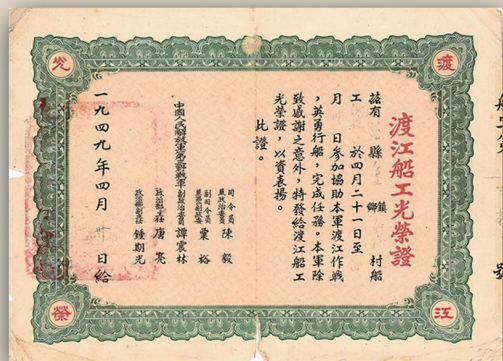 渡江船工光榮證
茲有 縣 鄉鎮 村船
工 於四月二十一日至
月 日參加協助本軍渡江作戰
，英勇行船，完成任務。本軍除
致感謝之意外，特發給渡江船工
光榮證，以資表揚。
此證。
中國人民解放軍第三野戰軍
司令員兼政治委員 陳毅
副司令員兼第二副政委 粟裕
副政治委員 譚震林
政治部主任 唐亮
政治部副主任 鍾期光
一九四九年四月 日給
渡
江
光
榮
號